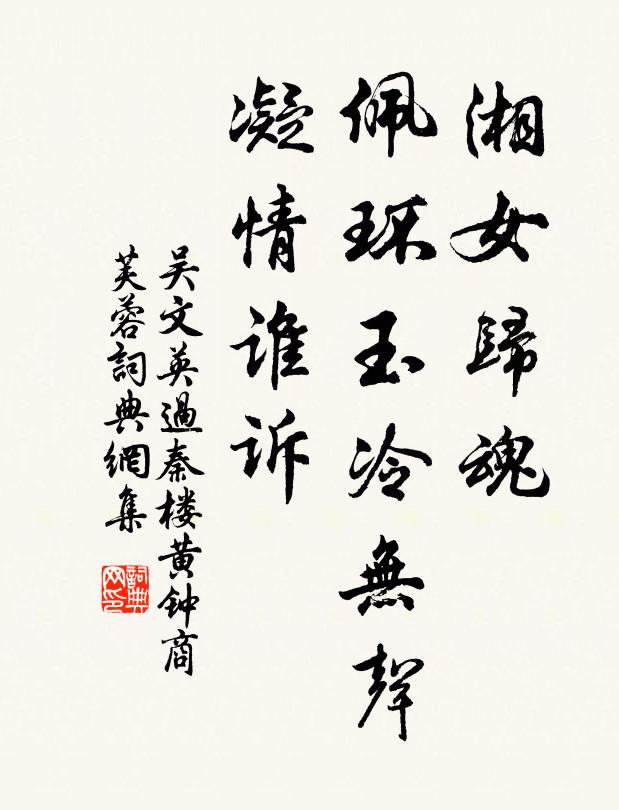 湘女歸魂
佩環玉冷無聲
凝情誰訴
吴文英過秦楼黄钟商
芙蓉詞典網集
詞典网印